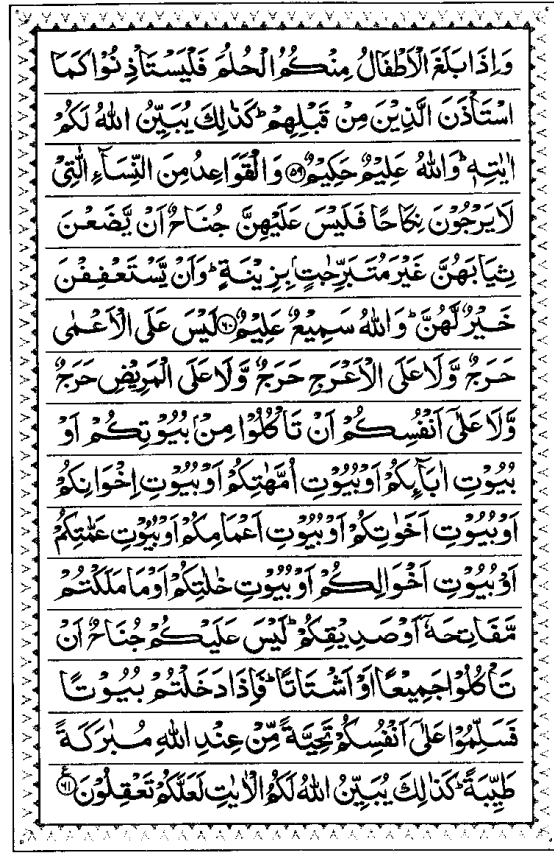 وَاِذَا بَلَغَ الْاَطْفَالُ مِنْكُمُ الْحُلُمَ فَلْيَسْتَاْذِنُوْا كَمَا
اسْتَاْذَنَ الَّذِيْنَ مِنْ قَبْلِهِمْ ؕ كَذٰلِكَ يُبَيِّنُ اللّٰهُ لَكُمْ
اٰيٰتِهٖ ؕ وَاللّٰهُ عَلِيْمٌ حَكِيْمٌ ﴿۵۹﴾ وَالْقَوَاعِدُ مِنَ النِّسَآءِ الّٰتِيْ
لَا يَرْجُوْنَ نِكَاحًا فَلَيْسَ عَلَيْهِنَّ جُنَاحٌ اَنْ يَّضَعْنَ
ثِيَابَهُنَّ غَيْرَ مُتَبَرِّجٰتٍۭ بِزِيْنَةٍ ؕ وَاَنْ يَّسْتَعْفِفْنَ
خَيْرٌ لَّهُنَّ ؕ وَاللّٰهُ سَمِيْعٌ عَلِيْمٌ ﴿۶۰﴾ لَيْسَ عَلَى الْاَعْمٰى
حَرَجٌ وَّلَا عَلَى الْاَعْرَجِ حَرَجٌ وَّلَا عَلَى الْمَرِيْضِ حَرَجٌ
وَّلَا عَلٰٓى اَنْفُسِكُمْ اَنْ تَاْكُلُوْا مِنْۢ بُيُوْتِكُمْ اَوْ
بُيُوْتِ اٰبَآئِكُمْ اَوْ بُيُوْتِ اُمَّهٰتِكُمْ اَوْ بُيُوْتِ اِخْوَانِكُمْ
اَوْ بُيُوْتِ اَخَوٰتِكُمْ اَوْ بُيُوْتِ اَعْمَامِكُمْ اَوْ بُيُوْتِ عَمّٰتِكُمْ
اَوْ بُيُوْتِ اَخْوَالِكُمْ اَوْ بُيُوْتِ خٰلٰتِكُمْ اَوْ مَا مَلَكْتُمْ
مَّفَاتِحَهٗۤ اَوْ صَدِيْقِكُمْ ؕ لَيْسَ عَلَيْكُمْ جُنَاحٌ اَنْ
تَاْكُلُوْا جَمِيْعًا اَوْ اَشْتَاتًا ؕ فَاِذَا دَخَلْتُمْ بُيُوْتًا
فَسَلِّمُوْا عَلٰٓى اَنْفُسِكُمْ تَحِيَّةً مِّنْ عِنْدِ اللّٰهِ مُبٰرَكَةً
طَيِّبَةً ؕ كَذٰلِكَ يُبَيِّنُ اللّٰهُ لَكُمُ الْاٰيٰتِ لَعَلَّكُمْ تَعْقِلُوْنَ ﴿۶۱﴾ ع